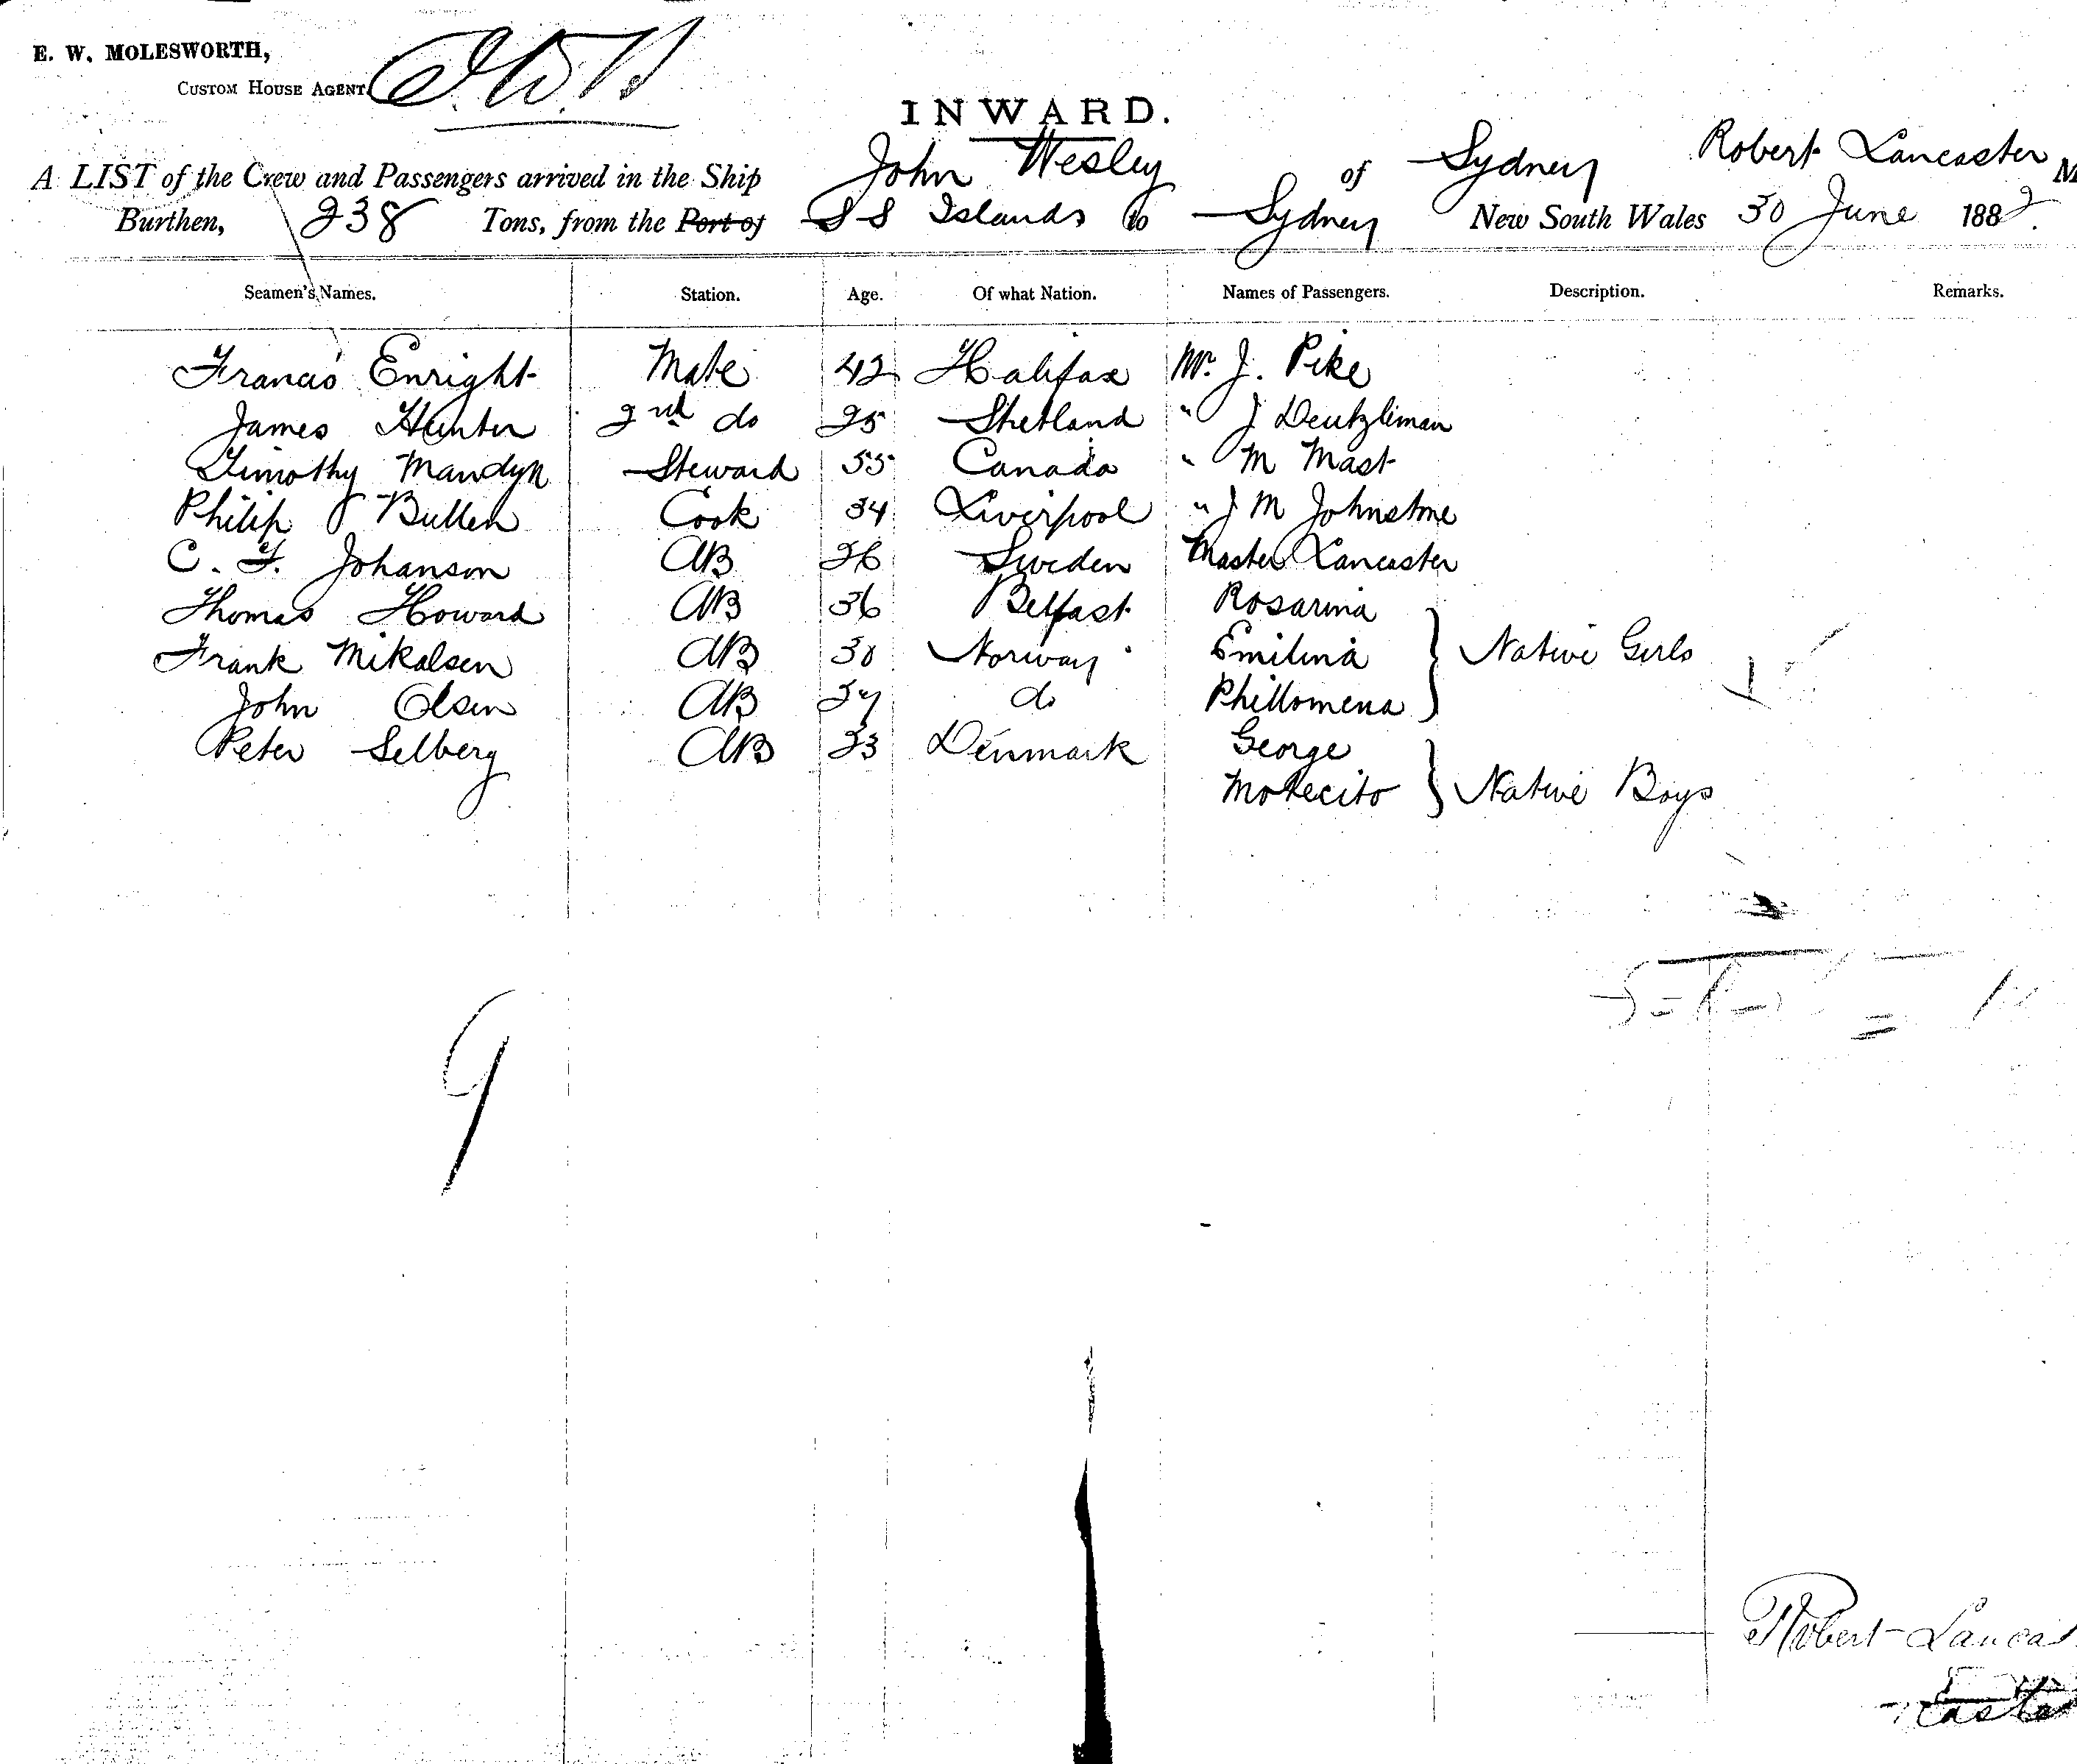 E. W. MOLESWORTH,
CUSTOM HOUSE AGENT.
INWARD.
A LIST of the Crew and Passengers arrived in the Ship John Wesley of Sydney Robert Lancaster M
Burthen, 238 Tons, from the Port of S S Islands to Sydney New South Wales 30 June 1882.
Seamen's Names. Station. Age. Of what Nation. Names of Passengers. Description. Remarks.
Francis Enright Mate 42 Halifax Mr. J. Pike
James Hunter 2nd do 25 Shetland " J Deutzliman
Timothy Mandyn Steward 55 Canada " M Mast
Philip J Bullen Cook 34 Liverpool " J M Johnstone
C. F. Johanson AB 26 Sweden Master Lancaster
Thomas Howard AB 36 Belfast Rosarina
Frank Mikalsen AB 30 Norway Emilina Native Girls
John Olsen AB do Phillomena
Peter Selberg AB 23 Denmark George
Motecito Native Boys
9
Robert Lancas